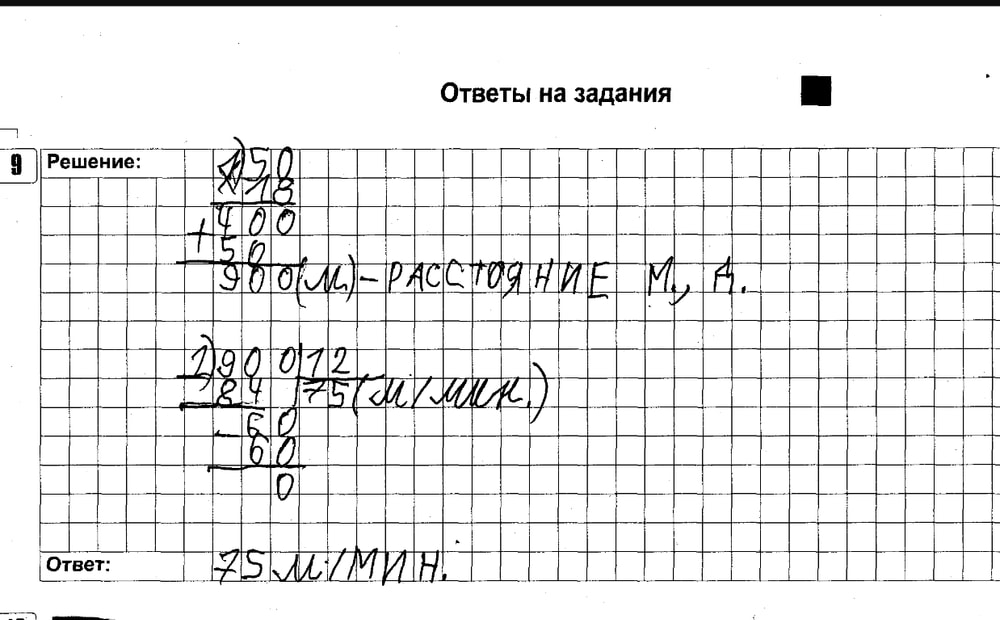 Ответы на задания
9 Решение:
1) 50
× 18
400
+ 50
900 (м) – РАССТОЯНИЕ М., Д.
2) 900 12
84 75 (м/мин.)
– 60
60
0
Ответ: 75 м/МИН.